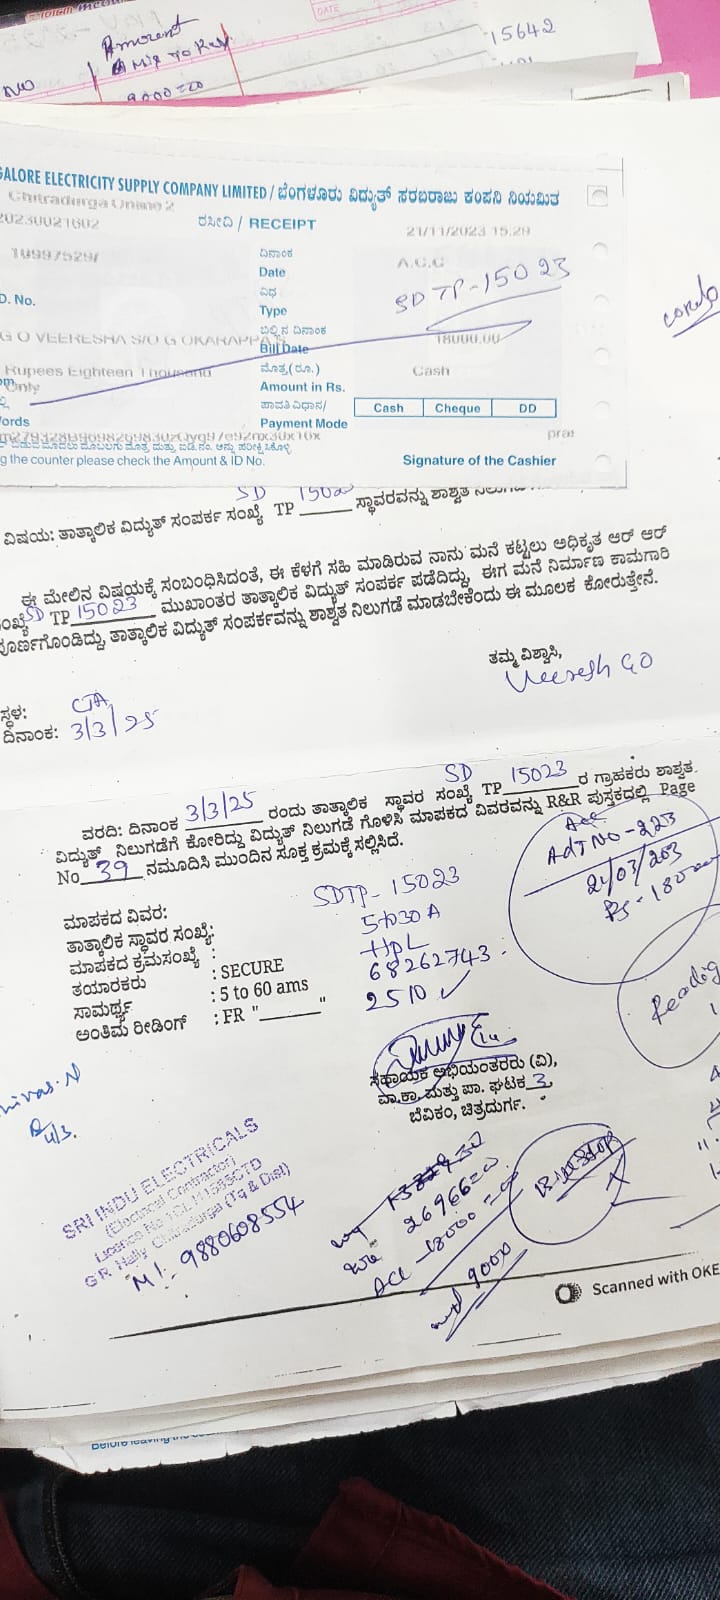 Amount
15642
9000=00
GALORE ELECTRICITY SUPPLY COMPANY LIMITED / ಬೆಂಗಳೂರು ವಿದ್ಯುತ್ ಸರಬರಾಜು ಕಂಪನಿ ನಿಯಮಿತ
Chitradurga 2
20230021602 ರಸೀದಿ / RECEIPT 21/11/2023 15:29
ದಿನಾಂಕ
Date A.C.C
D. No. ವಿಧ
Type SDTP-15023
ಬಿಲ್ಲಿನ ದಿನಾಂಕ
G O VEERESHA S/O G OKARAPPA Bill Date 18000.00
Rupees Eighteen Thousand ಮೊತ್ತ (ರೂ.) Cash
Only Amount in Rs.
ಪಾವತಿ ವಿಧಾನ/ Cash Cheque DD
ords Payment Mode
g the counter please check the Amount & ID No. Signature of the Cashier
ವಿಷಯ: ತಾತ್ಕಾಲಿಕ ವಿದ್ಯುತ್ ಸಂಪರ್ಕ ಸಂಖ್ಯೆ SD TP 15023 ಸ್ಥಾವರವನ್ನು ಶಾಶ್ವತ
ಈ ಮೇಲಿನ ವಿಷಯಕ್ಕೆ ಸಂಬಂಧಿಸಿದಂತೆ, ಈ ಕೆಳಗೆ ಸಹಿ ಮಾಡಿರುವ ನಾನು ಮನೆ ಕಟ್ಟಲು ಅಧಿಕೃತ ಆರ್ ಆರ್
ಸಂಖ್ಯೆ SD TP 15023 ಮುಖಾಂತರ ತಾತ್ಕಾಲಿಕ ವಿದ್ಯುತ್ ಸಂಪರ್ಕ ಪಡೆದಿದ್ದು, ಈಗ ಮನೆ ನಿರ್ಮಾಣ ಕಾಮಗಾರಿ
ಪೂರ್ಣಗೊಂಡಿದ್ದು, ತಾತ್ಕಾಲಿಕ ವಿದ್ಯುತ್ ಸಂಪರ್ಕವನ್ನು ಶಾಶ್ವತ ನಿಲುಗಡೆ ಮಾಡಬೇಕೆಂದು ಈ ಮೂಲಕ ಕೋರುತ್ತೇನೆ.
ತಮ್ಮ ವಿಶ್ವಾಸಿ,
Veeresh GO
ಸ್ಥಳ: CTA
ದಿನಾಂಕ: 3/3/25
ವರದಿ: ದಿನಾಂಕ 3/3/25 ರಂದು ತಾತ್ಕಾಲಿಕ ಸ್ಥಾವರ ಸಂಖ್ಯೆ SD TP 15023 ರ ಗ್ರಾಹಕರು ಶಾಶ್ವತ
ವಿದ್ಯುತ್ ನಿಲುಗಡೆಗೆ ಕೋರಿದ್ದು ವಿದ್ಯುತ್ ನಿಲುಗಡೆ ಗೊಳಿಸಿ ಮಾಪಕದ ವಿವರವನ್ನು R&R ಪುಸ್ತಕದಲ್ಲಿ Page
No 39 ನಮೂದಿಸಿ ಮುಂದಿನ ಸೂಕ್ತ ಕ್ರಮಕ್ಕೆ ಸಲ್ಲಿಸಿದೆ.
AdT NO-223
21/03/203
Rs-18000
ಮಾಪಕದ ವಿವರ:
ತಾತ್ಕಾಲಿಕ ಸ್ಥಾವರ ಸಂಖ್ಯೆ: SDTP-15023
ಮಾಪಕದ ಕ್ರಮಸಂಖ್ಯೆ : 5-30A
ತಯಾರಕರು : SECURE HPL
ಸಾಮರ್ಥ್ಯ : 5 to 60 ams 68262743
ಅಂತಿಮ ರೀಡಿಂಗ್ : FR "______" 2510
Reading
ಸಹಾಯಕ ಅಭಿಯಂತರರು (ವಿ),
ವಾ.ಕಾ. ಮತ್ತು ಪಾ. ಘಟಕ 3,
ಬೆವಿಕಂ, ಚಿತ್ರದುರ್ಗ.
SRI INDU ELECTRICALS
(Electrical Contractor)
GR Hally, Chitradurga (Tq & Dist)
M:- 9880608554
26966=0
ACC -18000=00
9000
Bill Stop
Scanned with OKE